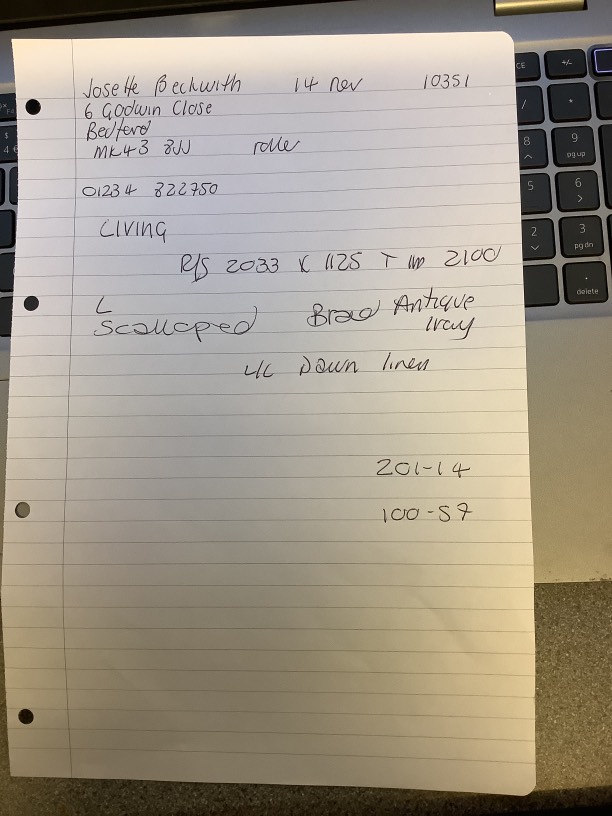 Josette Beckwith 14 nov 10351
6 Godwin Close
Bedford
MK43 8JJ roller
01234 822750
Living
R/S 2033 X 1125 T 2100
L
Scalloped Braid Antique
Ivory
Dawn linen
201-14
100-57
CE +/-
/ *
8 9 pg up
5 6
2 3 pg dn
. delete
$ 4